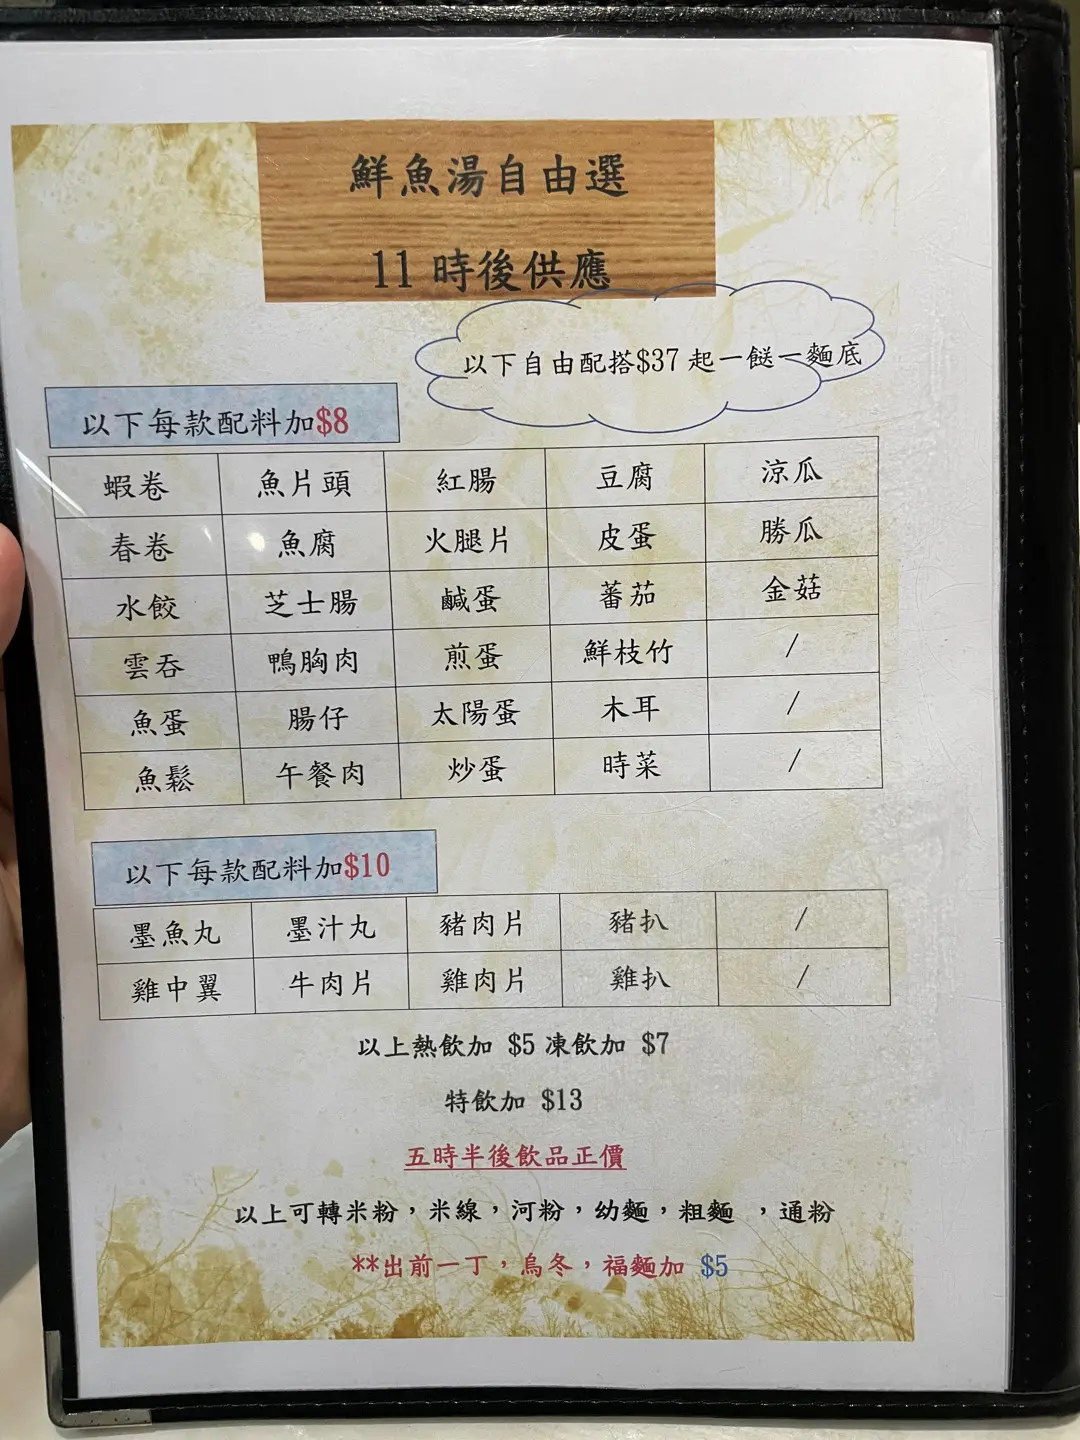 鮮魚湯自由選
11 時後供應
以下自由配搭$37 起一餸一麵底
以下每款配料加$8
蝦卷 魚片頭 紅腸 豆腐 涼瓜
春卷 魚腐 火腿片 皮蛋 勝瓜
水餃 芝士腸 鹹蛋 蕃茄 金菇
雲吞 鴨胸肉 煎蛋 鮮枝竹 /
魚蛋 腸仔 太陽蛋 木耳 /
魚鬆 午餐肉 炒蛋 時菜 /
以下每款配料加$10
墨魚丸 墨汁丸 豬肉片 豬扒 /
雞中翼 牛肉片 雞肉片 雞扒 /
以上熱飲加 $5 凍飲加 $7
特飲加 $13
五時半後飲品正價
以上可轉米粉，米線，河粉，幼麵，粗麵 ，通粉
**出前一丁，烏冬，福麵加 $5